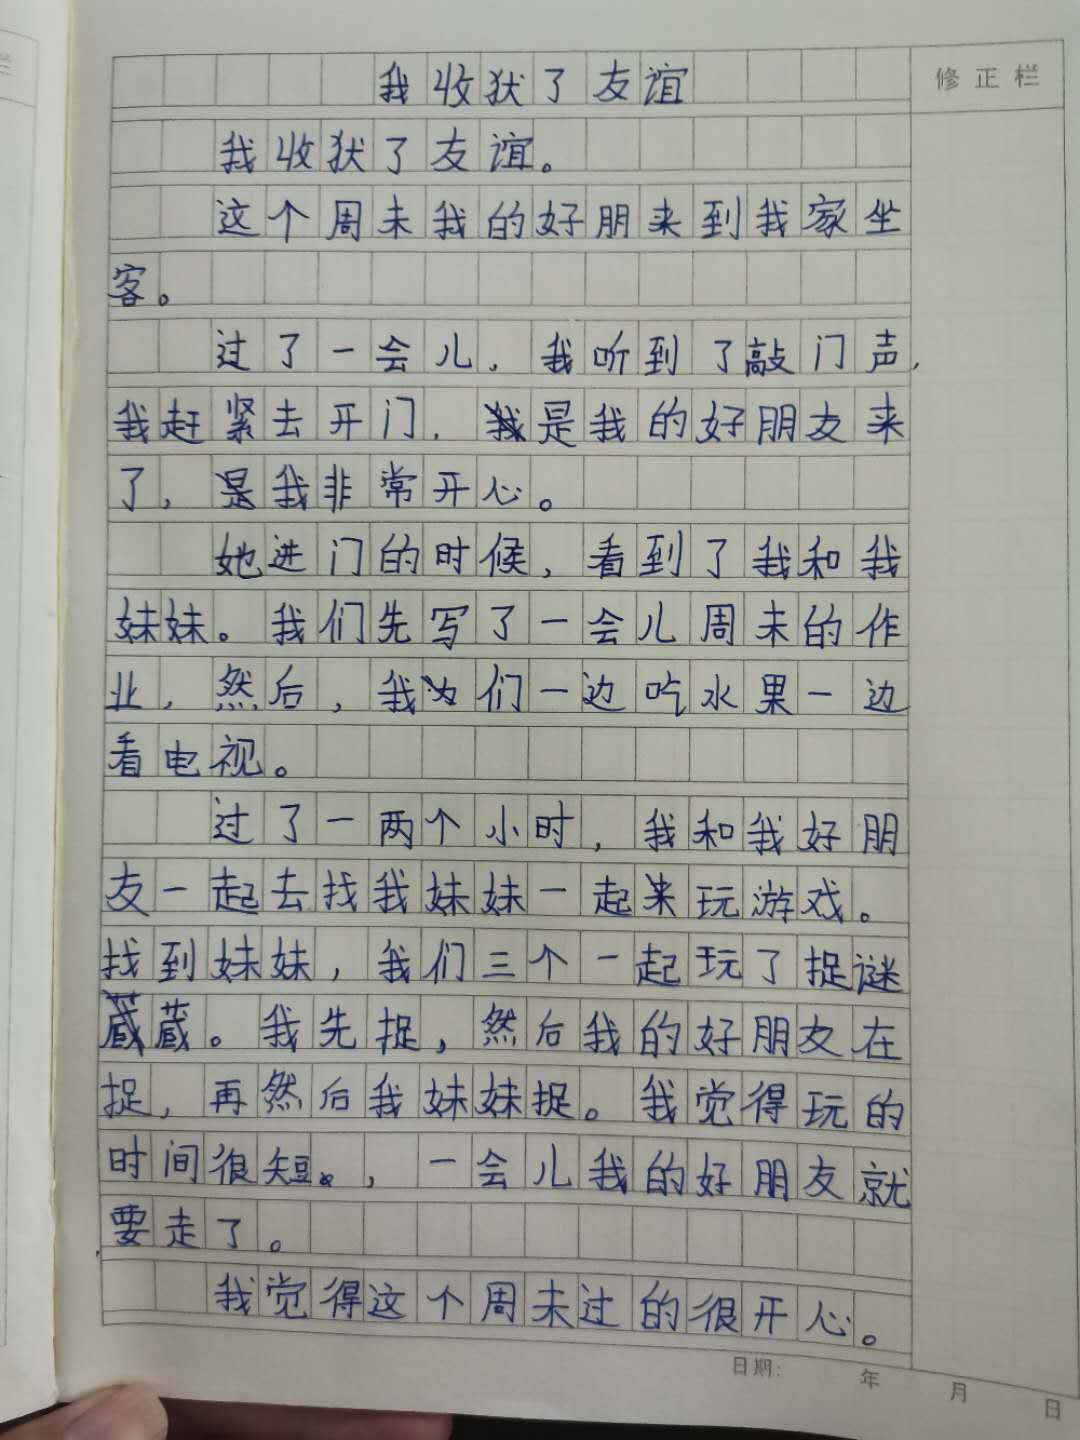 我收狄了友谊
修正栏
我收狄了友谊。
这个周未我的好朋来到我家坐
客。
过了一会儿，我听到了敲门声，
我赶紧去开门，是我的好朋友来
了，是我非常开心。
她进门的时候，看到了我和我
妹妹。我们先写了一会儿周未的作
业，然后，我们一边吃水果一边
看电视。
过了一两个小时，我和我好朋
友一起去找我妹妹一起来玩游戏。
找到妹妹，我们三个一起玩了捉谜
蔵。我先捉，然后我的好朋友在
捉，再然后我妹妹捉。我觉得玩的
时间很短，一会儿我的好朋友就
要走了。
我觉得这个周未过的很开心。
日期： 年 月 日